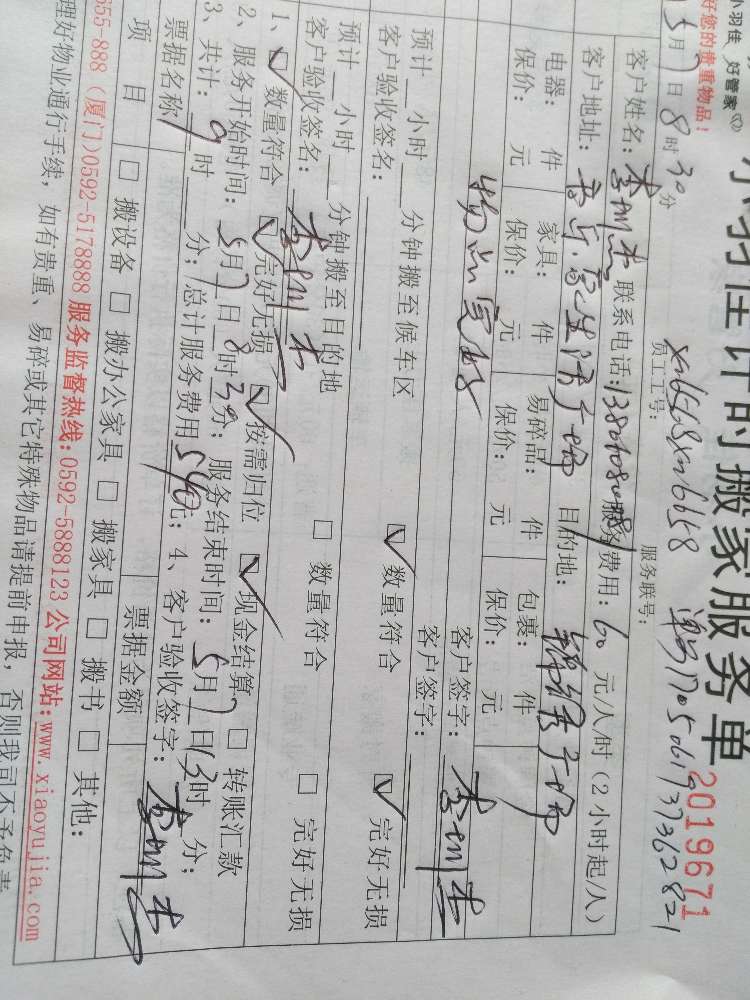 小羽佳 好管家
好您的贵重物品！
小羽佳计时搬家服务单
2019671
5月7日8时30分
员工工号：
xm6558xm6658
服务联号：
单号1705061937362821
客户姓名： 联系电话： 服务费用：60元/人/时（2小时起/人）
客户地址： 目的地：
电器： 件 家具： 件 易碎品： 件 包裹： 件
保价： 元 保价： 元 保价： 元 保价： 元
物品完好 客户签字：
预计__小时__分钟搬至候车区 数量符合 完好无损
客户验收签名： 客户签字：
预计__小时__分钟搬至目的地 数量符合 完好无损
客户验收签名：
1、 数量符合 完好无损 按需归位 现金结算 转账汇款
2、服务开始时间：5月7日8时30分；服务结束时间：5月7日13时 分；
3、共计：9时__分；总计服务费用540元；4、客户验收签字：
票据名称 票据金额
项 目 搬设备 搬办公家具 搬家具 搬书 其他：
555-888（厦门）0592-5178888 服务监督热线：0592-5888123 公司网站：www.xiaoyujia.com
理好物业通行手续，如有贵重、易碎或其它特殊物品请提前申报，否则我司不予负责